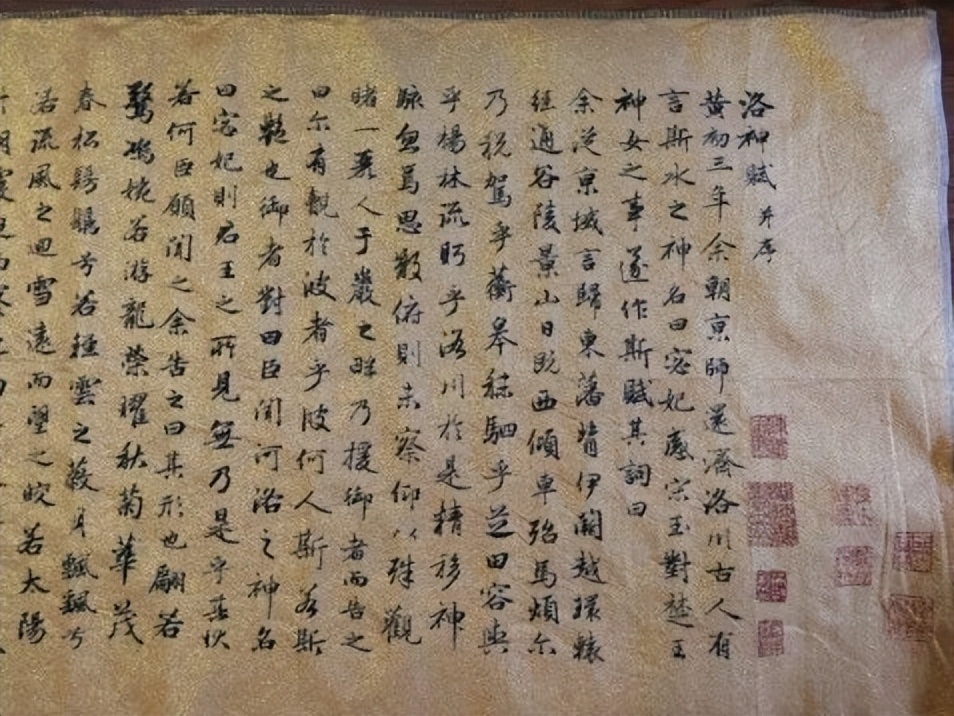 洛神賦 并序
黄初三年余朝京師還濟洛川古人有
言斯水之神名曰宓妃感宋玉對楚王
神女之事遂作斯賦其詞曰
余從京域言歸東藩背伊闕越轘轅
經通谷陵景山日既西傾車殆馬煩尔
乃税駕乎蘅皋秣駟乎芝田容與
乎楊林流眄乎洛川於是精移神
駭忽焉思散俯則未察仰以殊觀
睹一麗人于巖之畔乃援御者而告之
曰尔有覿於彼者乎彼何人斯若斯
之豔也御者對曰臣聞河洛之神名
曰宓妃則君王之所見無乃是乎其狀
若何臣願聞之余告之曰其形也翩若
驚鴻婉若游龍榮曜秋菊華茂
春松髣髴兮若輕雲之蔽月飄飖兮
若流風之迴雪遠而望之皎若太陽